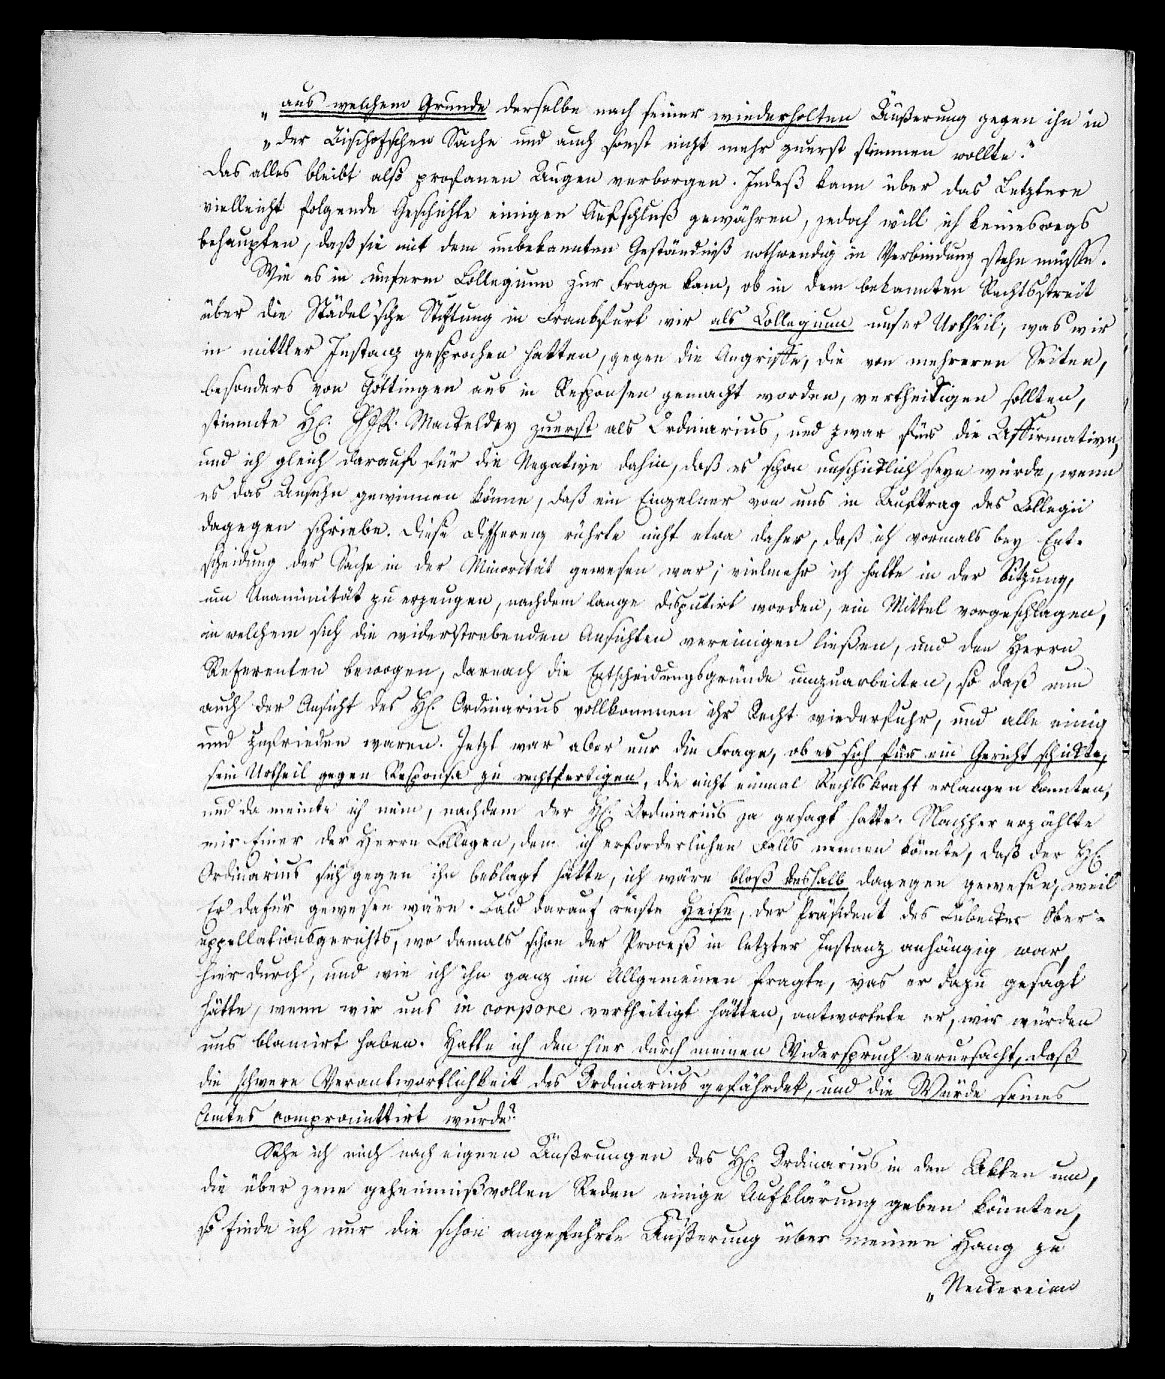 „aus welchem Grunde derselbe nach seiner wiederholten Äußerung gegen ihn in
„der Bischofschen Sache und auch sonst nicht mehr zuerst stimmen wollte.“
Das alles bleibt also profanen Augen verborgen. Indeß kann über das Letztere
vielleicht folgende Geschichte einigen Aufschluß gewähren, jedoch will ich keineswegs
behaupten, daß sie mit dem unbekannten Geständniß nothwendig in Verbindung stehn müsse.
Wie es in unserm Collegium zur Frage kam, ob in dem bekannten Rechtsstreit
über die Städel'sche Stiftung in Frankfurt wir als Collegium unser Urtheil, was wir
in mittler Instanz gesprochen hatten, gegen die Angriffe, die von mehreren Seiten,
besonders von Göttingen aus in Responsen gemacht worden, vertheidigen sollten,
stimmte H. GJR. Mackeldey zuerst als Ordinarius, und zwar für die Affirmative,
und ich gleich darauf für die Negative dahin, daß es schon unschicklich seyn würde, wenn
es das Ansehn gewinnen könne, daß ein Einzelner von uns in Auftrag des Collegii
dagegen schriebe. Diese Differenz rührte nicht etwa daher, daß ich vormals bey Ent-
scheidung der Sache in der Minorität gewesen war; vielmehr ich hatte in der Sitzung,
um Unanimität zu erzeugen, nachdem lange disputirt worden, ein Mittel vorgeschlagen,
in welchem sich die widerstrebenden Ansichten vereinigen ließen, und den Herrn
Referenten bewogen, darnach die Entscheidungsgründe umzuarbeiten, so daß nun
auch der Ansicht des H. Ordinarius vollkommen ihr Recht wiederfuhr, und alle einig
und zufrieden waren. Jetzt war aber nur die Frage, ob es sich für ein Gericht schickte,
sein Urtheil gegen Responsa zu rechtfertigen, die nicht einmal Rechtskraft erlangen konnten,
und da meinte ich nein, nachdem der H. Ordinarius ja gesagt hatte. Nachher erzählte
mir Einer der Herrn Collegen, den ich erforderlichen Falls nennen könnte, daß der H.
Ordinarius sich gegen ihn beklagt hätte, ich wäre bloß deshalb dagegen gewesen, weil
Er dafür gewesen wäre. Bald darauf reiste Heise, der Präsident des Lübecker Ober-
appellationsgerichts, wo damals schon der Proceß in letzter Instanz anhängig war,
hier durch, und wie ich ihn ganz im Allgemeinen fragte, was er dazu gesagt
hätte, wenn wir uns in corpore vertheitigt hätten, antwortete er, wir würden
uns blamirt haben. Hatte ich den hier durch meinen Widerspruch verursacht, daß
die schwere Verantwortlichkeit des Ordinarius gefährdet, und die Würde seines
Amtes compromittirt wurde?
Sehe ich mich nach eignen Äußrungen des H. Ordinarius in den Akten um,
die über jene geheimnißvollen Reden einige Aufklärung geben könnten,
so finde ich nur die schon angeführte Äußerung über meinen Hang zu
„Neckereien